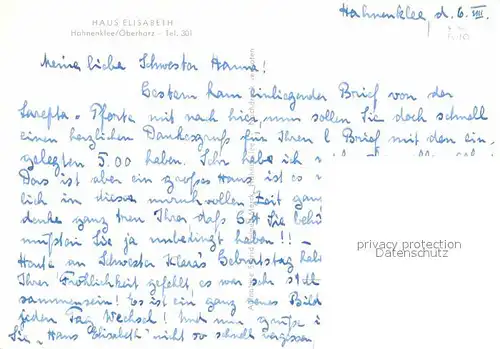 HAUS ELISABETH
Hahnenklee/Oberharz – Tel. 301
Hahnenklee, d. 6. VIII.
Meine liebe Schwester Hanna!
Gestern kam einliegender Brief von der
Sarepta-Pforte mit nach hier, nun sollen Sie doch schnell
einen herzlichen Dankesgruß für Ihren l. Brief mit den ein-
gelegten 5.00 haben. Sehr habe ich
Das ist aber ein großes Haus ist es
lich in dieser unruhvollen Zeit
denke ganz treu Ihrer, daß Gott Sie
mußten Sie ja unbedingt haben!! –
Heute an Schwester Klara's Geburtstag
Ihrer Fröhlichkeit gefehlt, es war sehr still
sammensein! Es ist ein ganz neues Bild
jeden Tag Wechsel! Und nun grüße
Sie „Haus Elisabeth" nicht so schnell vergessen
privacy protection
Datenschutz